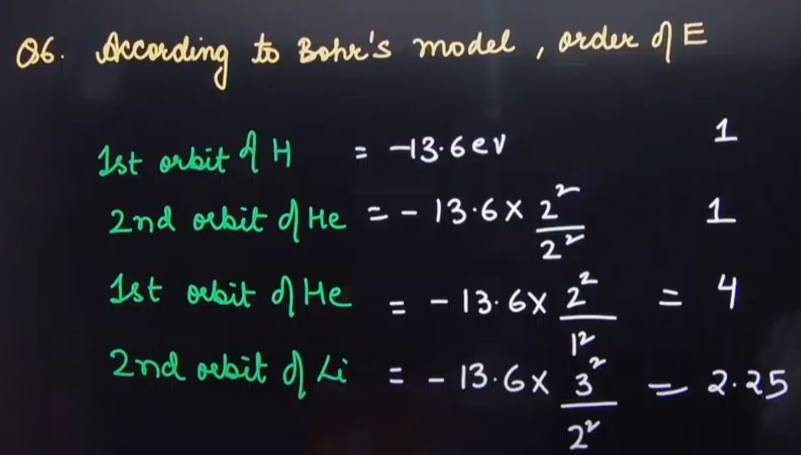 Q6. According to Bohr's model, order of E
1st orbit of H = -13.6ev 1
2nd orbit of He = - 13.6 x 2²/2² 1
1st orbit of He = - 13.6x 2²/1² = 4
2nd orbit of Li = - 13.6x 3²/2² = 2.25